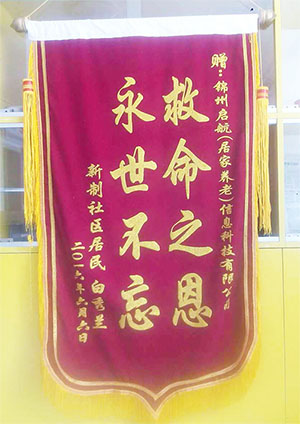 赠：锦州启航(居家养老)信息科技有限公司
救命之恩
永世不忘
新制社区居民 白秀兰
二〇一六年六月六日